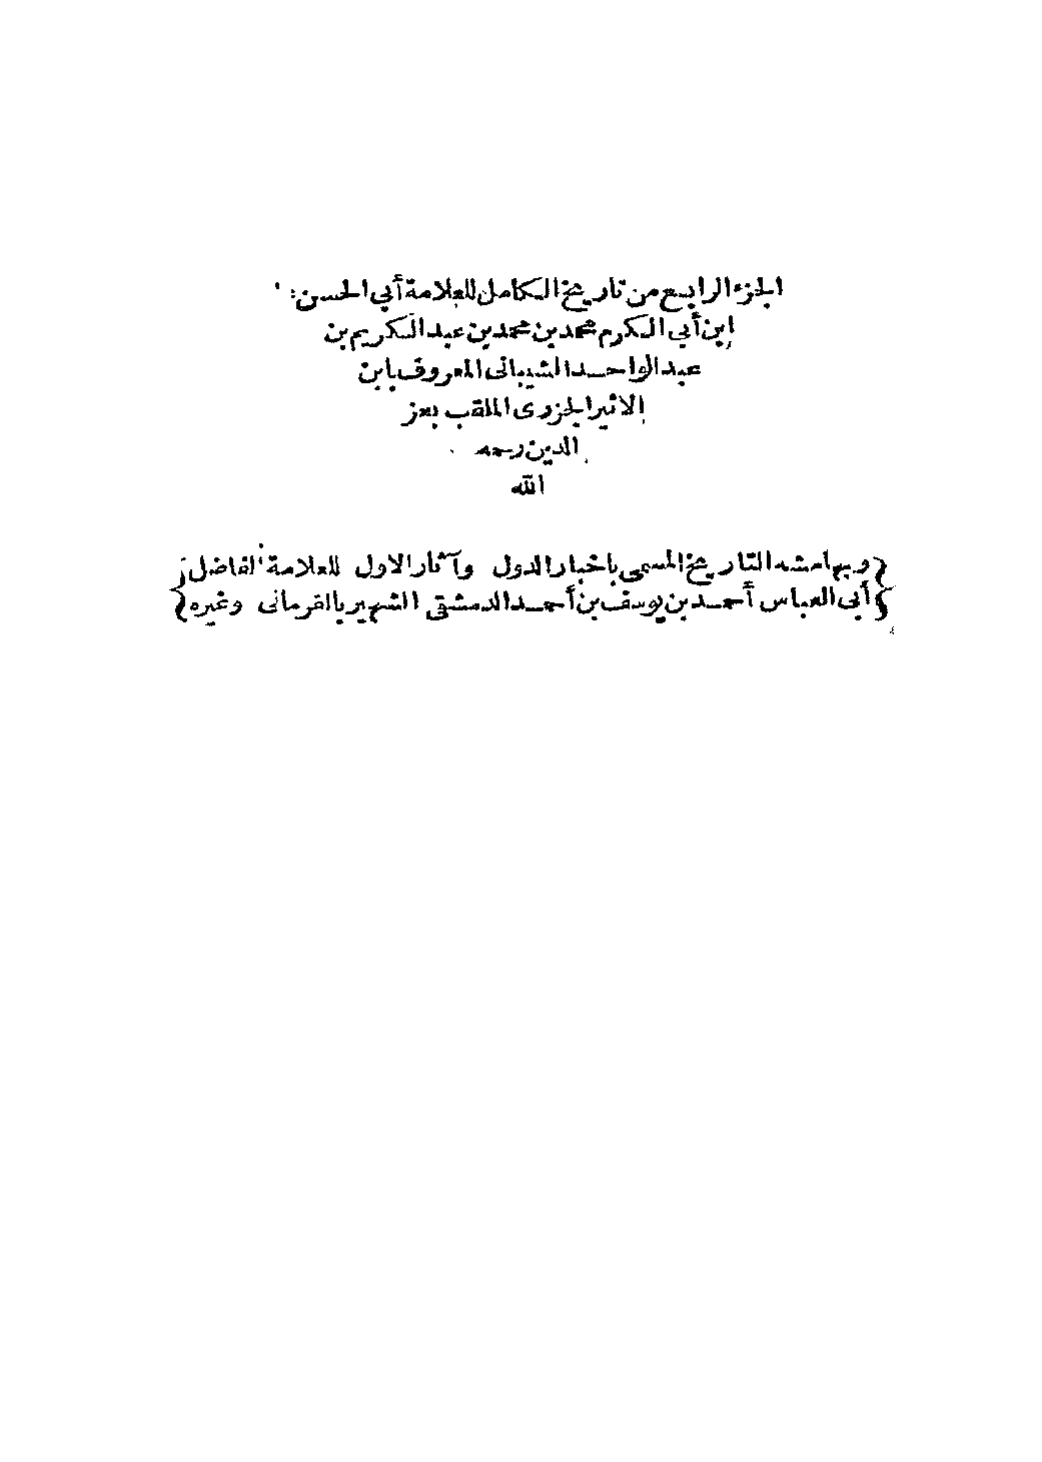 الجزء الرابع من تاريخ الكامل للعلامة أبي الحسن
ابن أبي الكرم محمد بن محمد بن عبد الكريم بن
عبد الواحد الشيباني المعروف بابن
الاثير الجزرى الملقب بعز
الدين رحمه
الله
{وبهامشه التاريخ المسمى باخبار الدول وآثار الاول للعلامة الفاضل}
{أبى العباس أحمد بن يوسف بن أحمد الدمشقى الشهير بالقرمانى وغيره}